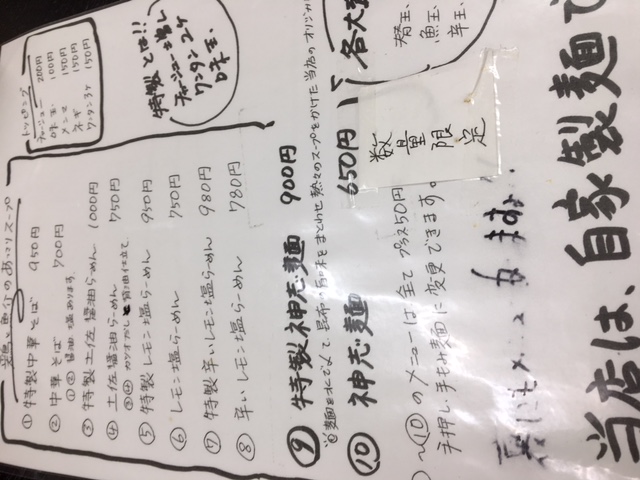 当店は、自家製麺で
鶏と魚介のあっさりスープ
① 特製中華そば 950円
② 中華そば 700円
①② 醤油、塩あります。
③ 特製土佐醤油らーめん 1000円
④ 土佐醤油らーめん 750円
③④ カツオだしと醤油仕立て
⑤ 特製レモン塩らーめん 950円
⑥ レモン塩らーめん 750円
⑦ 特製辛いレモン塩らーめん 980円
⑧ 辛いレモン塩らーめん 780円
トッピング
チャーシュー 200円
味玉 100円
メンマ 150円
ネギ 150円
ワンタン3ケ 150円
特製とは!!
チャーシュー増し
ワンタン2ケ
味玉
⑨ 特製神志麺 900円
⑩ 神志麺 650円
数量限定
各大
替玉
〜⑩のメニューは全てプラス50円
手押し手もみ麺に変更できます。